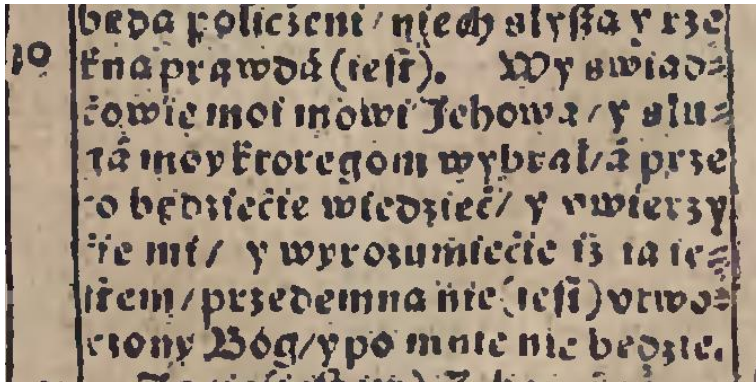 będą policżeni / niech słyszą y rze
10 kną prawdá (iest). Wy swiad⸗
kowie moi mowi Jehowa / y słu⸗
gá moy ktoregom wybrał / á prze
to będziećie wiedzieć / y vwierzy
ćie mi / y wyrozumiećie iż ia ie⸗
stem / przedemną nie (iest) vtwo⸗
rzony Bóg / y po mnie nie będzie.